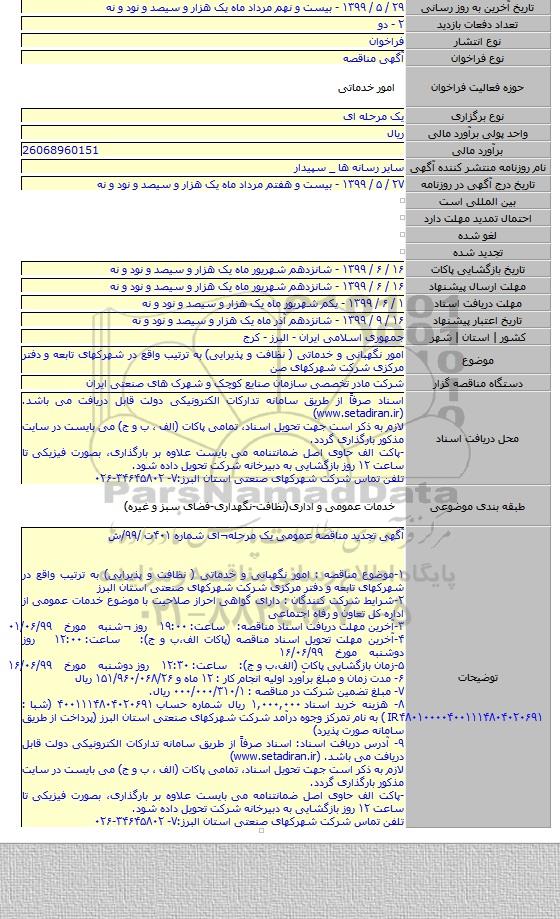 تاریخ آخرین به روز رسانی ۲۹ / ۵ / ۱۳۹۹ - بیست و نهم مرداد ماه یک هزار و سیصد و نود و نه
تعداد دفعات بازدید ۲ - دو
نوع انتشار فراخوان
نوع فراخوان آگهی مناقصه
حوزه فعالیت فراخوان امور خدماتی
نوع برگزاری یک مرحله ای
واحد پولی برآورد مالی ریال
برآورد مالی 26068960151
نام روزنامه منتشر کننده آگهی سایر رسانه ها _ سپیدار
تاریخ درج آگهی در روزنامه ۲۷ / ۵ / ۱۳۹۹ - بیست و هفتم مرداد ماه یک هزار و سیصد و نود و نه
بین المللی است
احتمال تمدید مهلت دارد
لغو شده
تجدید شده
تاریخ بازگشایی پاکات ۱۶ / ۶ / ۱۳۹۹ - شانزدهم شهریور ماه یک هزار و سیصد و نود و نه
مهلت ارسال پیشنهاد ۱۶ / ۶ / ۱۳۹۹ - شانزدهم شهریور ماه یک هزار و سیصد و نود و نه
مهلت دریافت اسناد ۱ / ۶ / ۱۳۹۹ - یکم شهریور ماه یک هزار و سیصد و نود و نه
تاریخ اعتبار پیشنهاد ۱۶ / ۹ / ۱۳۹۹ - شانزدهم آذر ماه یک هزار و سیصد و نود و نه
کشور | استان | شهر جمهوری اسلامی ایران - البرز - کرج
موضوع امور نگهبانی و خدماتی ( نظافت و پذیرایی) به ترتیب واقع در شهرکهای تابعه و دفتر
مرکزی شرکت شهرکهای صن
دستگاه مناقصه گزار شرکت مادر تخصصی سازمان صنایع کوچک و شهرک های صنعتی ایران
محل دریافت اسناد اسناد صرفاً از طریق سامانه تدارکات الکترونیکی دولت قابل دریافت می باشد.
(www.setadiran.ir)
لازم به ذکر است جهت تحویل اسناد، تمامی پاکات (الف ، ب و ج) می بایست در سایت
مذکور بارگذاری گردد.
-پاکت الف حاوی اصل ضمانتنامه می بایست علاوه بر بارگذاری، بصورت فیزیکی تا
ساعت ۱۲ روز بازگشایی به دبیرخانه شرکت تحویل داده شود.
تلفن تماس شرکت شهرکهای صنعتی استان البرز:۷- ۳۴۶۴۵۸۰۲-۰۲۶
طبقه بندی موضوعی خدمات عمومی و اداری(نظافت-نگهداری-فضای سبز و غیره)
توضیحات
آگهی تجدید مناقصه عمومی یک مرحله¬ای شماره ۴۰۱ت /۹۹/ش
۱-موضوع مناقصه : امور نگهبانی و خدماتی ( نظافت و پذیرایی) به ترتیب واقع در
شهرکهای تابعه و دفتر مرکزی شرکت شهرکهای صنعتی استان البرز
۲-شرایط شرکت کنندگان : دارای گواهی احراز صلاحیت با موضوع خدمات عمومی از
اداره کل تعاون و رفاه اجتماعی
۳-آخرین مهلت دریافت اسناد مناقصه: ساعت: ۱۹:۰۰ روز ¬شنبه مورخ ۰۱/۰۶/۹۹
۴-آخرین مهلت تحویل اسناد مناقصه (پاکات الف،ب و ج): ساعت: ۱۲:۰۰ روز
دوشنبه مورخ ۱۶/۰۶/۹۹
۵-زمان بازگشایی پاکات (الف،ب و ج): ساعت: ۱۲:۳۰ روز دوشنبه مورخ ۱۶/۰۶/۹۹
۶- مدت زمان و مبلغ برآورد اولیه انجام کار : ۱۲ ماه و ۱۵۱/۹۶۰/۰۶۸/۲۶ ریال
۷- مبلغ تضمین شرکت در مناقصه : ۰۰۰/۰۰۰/۳۱۰/۱ ریال.
۸- هزینه خرید اسناد ۱,۰۰۰,۰۰۰ ریال شماره حساب ۴۰۰۱۱۱۴۸۰۴۰۲۰۶۹۱ (شبا :
IR۴۸۰۱۰۰۰۰۴۰۰۱۱۱۴۸۰۴۰۲۰۶۹۱ ) به نام تمرکز وجوه درآمد شرکت شهرکهای صنعتی استان البرز (پرداخت از طریق
سامانه صورت پذیرد)
۹- آدرس دریافت اسناد: اسناد صرفاً از طریق سامانه تدارکات الکترونیکی دولت قابل
دریافت می باشد. (www.setadiran.ir)
لازم به ذکر است جهت تحویل اسناد، تمامی پاکات (الف ، ب و ج) می بایست در سایت
مذکور بارگذاری گردد.
-پاکت الف حاوی اصل ضمانتنامه می بایست علاوه بر بارگذاری، بصورت فیزیکی تا
ساعت ۱۲ روز بازگشایی به دبیرخانه شرکت تحویل داده شود.
تلفن تماس شرکت شهرکهای صنعتی استان البرز:۷- ۳۴۶۴۵۸۰۲-۰۲۶
ParsNamadData